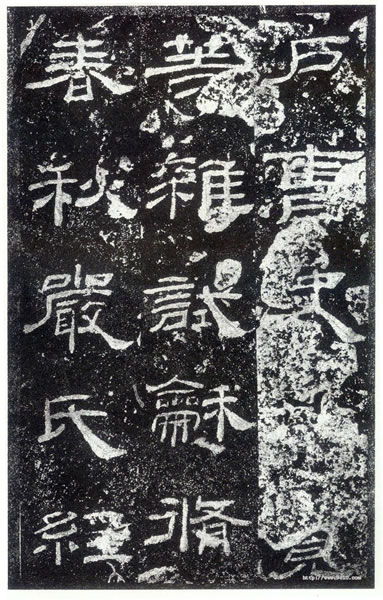 户曹史
等雜試龢脩
春秋嚴氏經